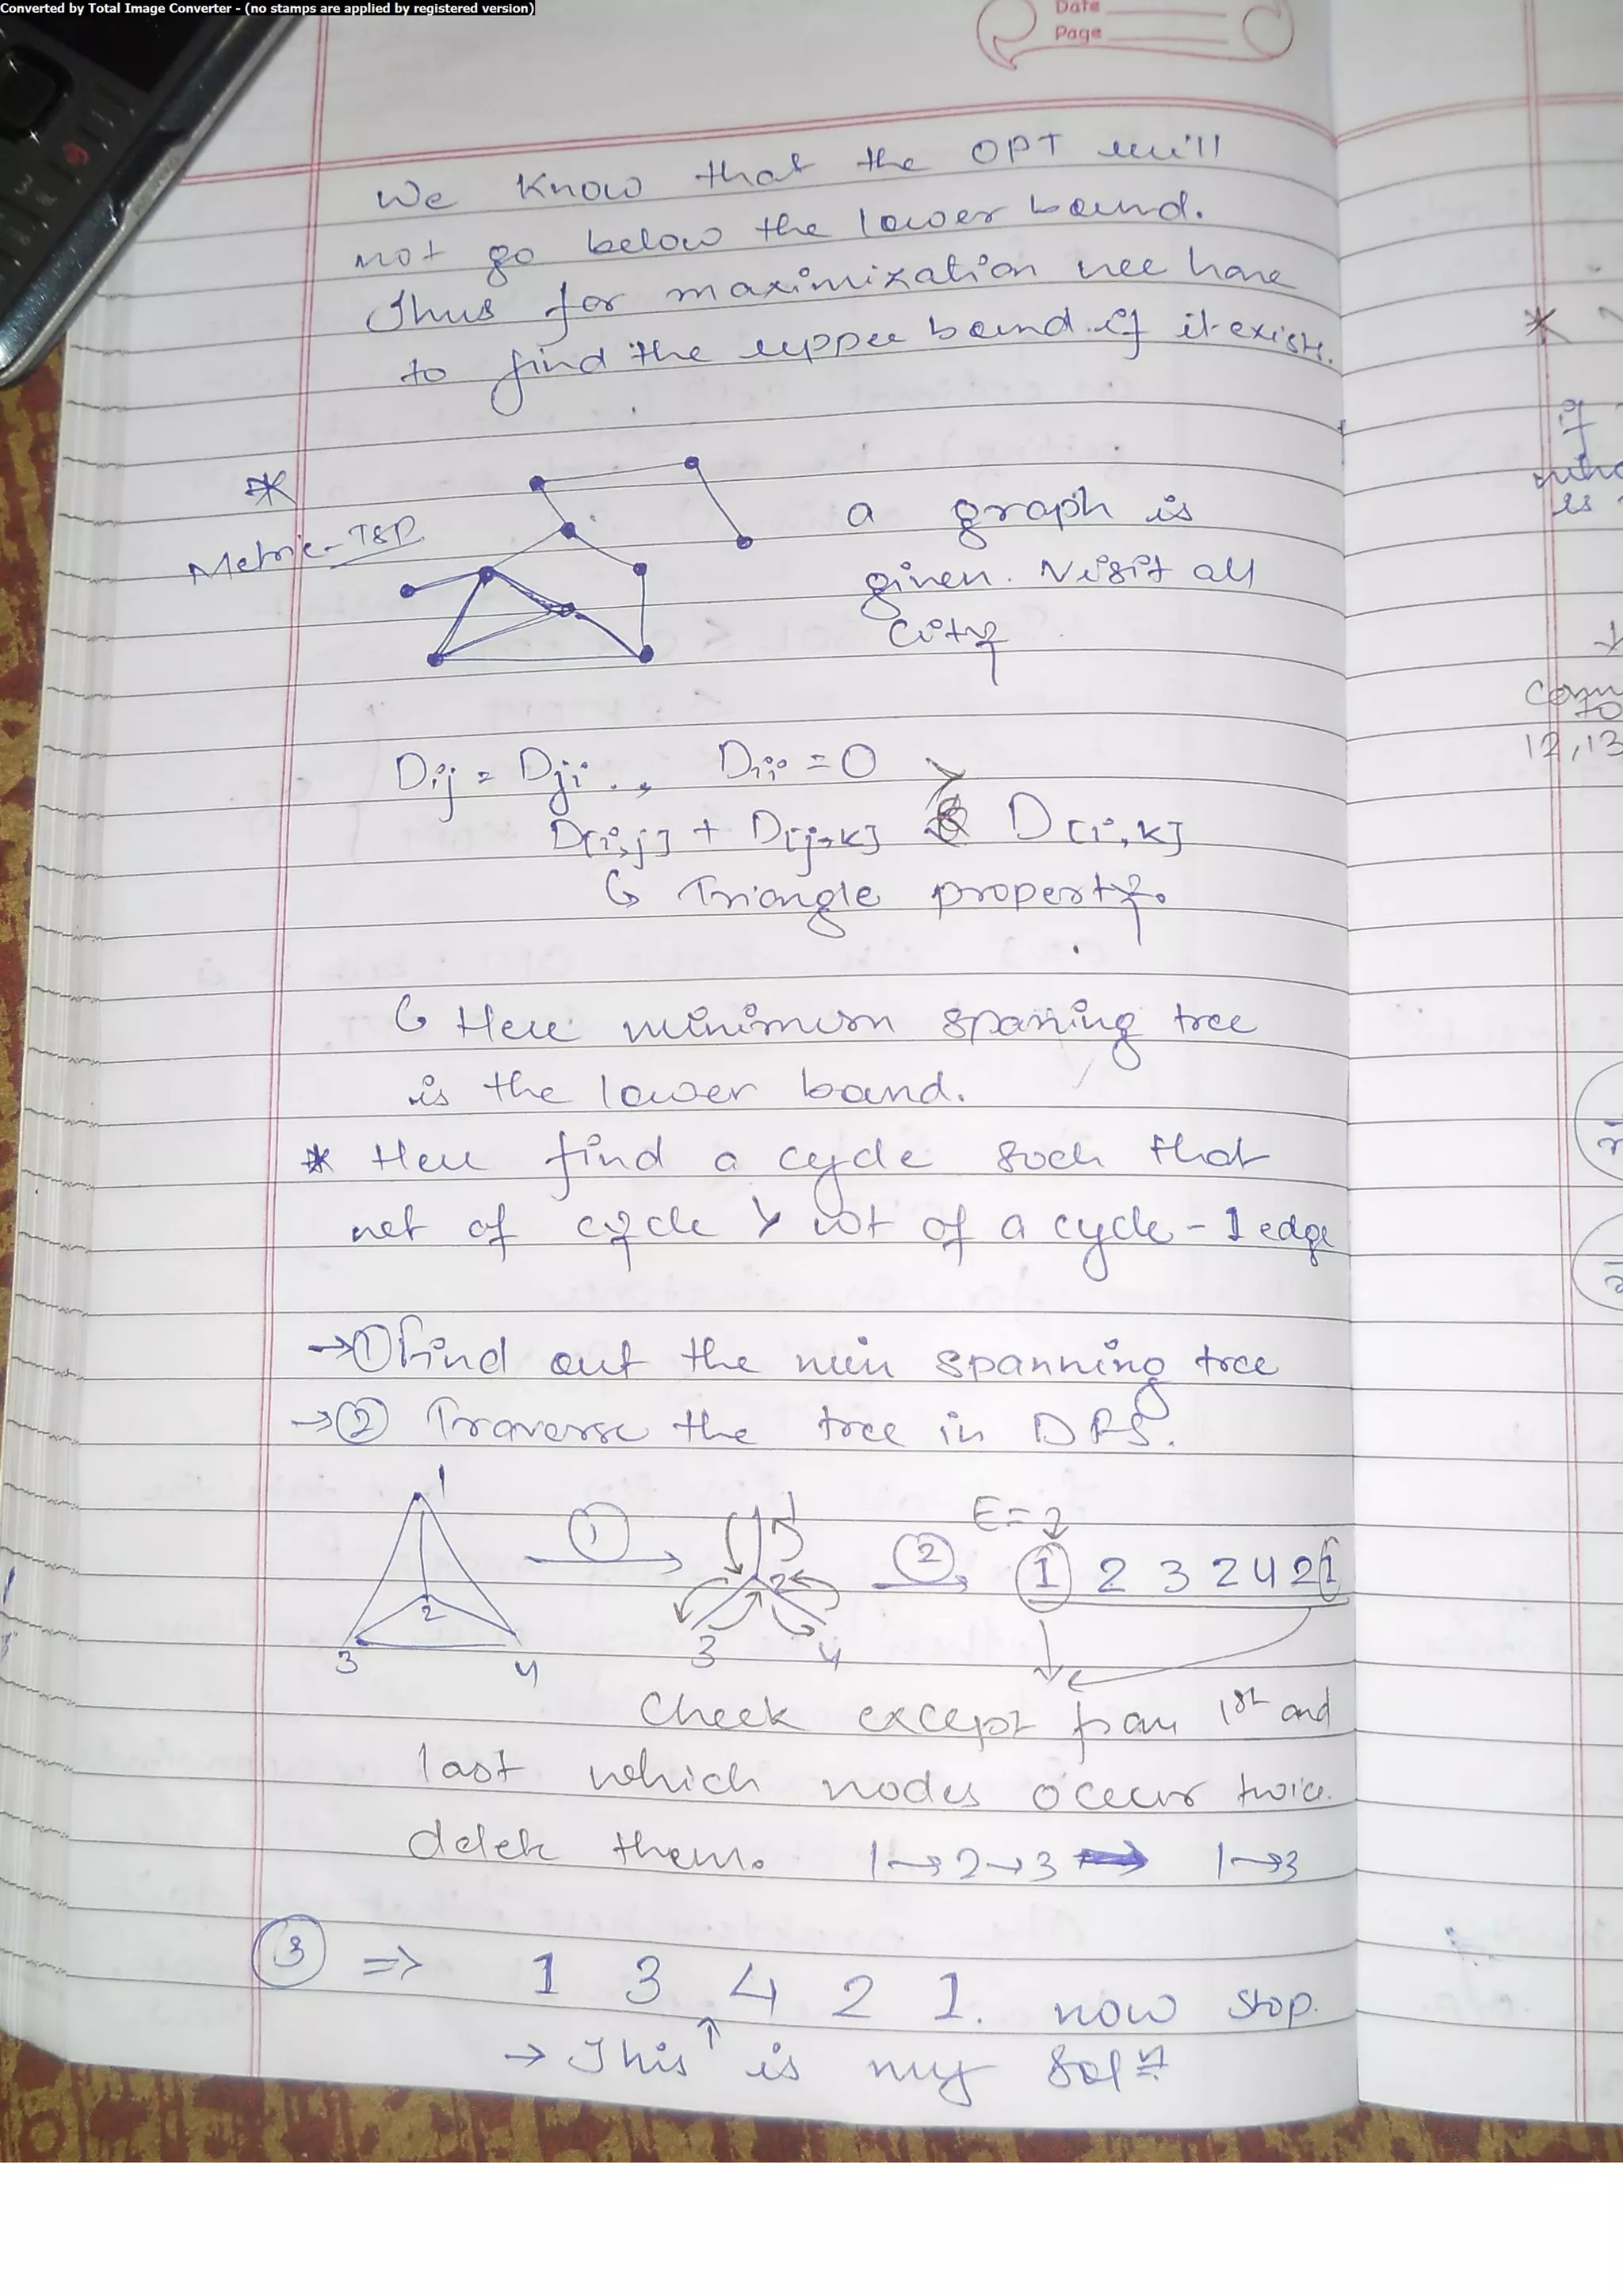 Converted by Total Image Converter - (no stamps are applied by registered version)
Date
Page
We know that the OPT will
not go below the lower bound.
Thus for maximization we have
to find the upper bound if it exists.
*
Metric-TSP
a graph is
given. Visit all
City
Dij = Dji, Dii = 0
D[i,j] + D[j,k] ≥ D[i,k]
↳ Triangle property.
↳ Here minimum spaning tree
is the lower band.
* Here find a cycle such that
wt of cycle > wt of a cycle - 1 edge
→ ① Find out the min spanning tree
→ ② Traverse the tree in DFS.
1 2 3 4
①
1 2 3 4
②
E =
1 2 3 2 4 2 1
Check except from 1st and
last which nodes occur twice.
delete them. 1→2→3 → 1→3
③ ⇒ 1 3 4 2 1. now stop.
→ This ↑ is my solⁿ
*
if
is
12,13